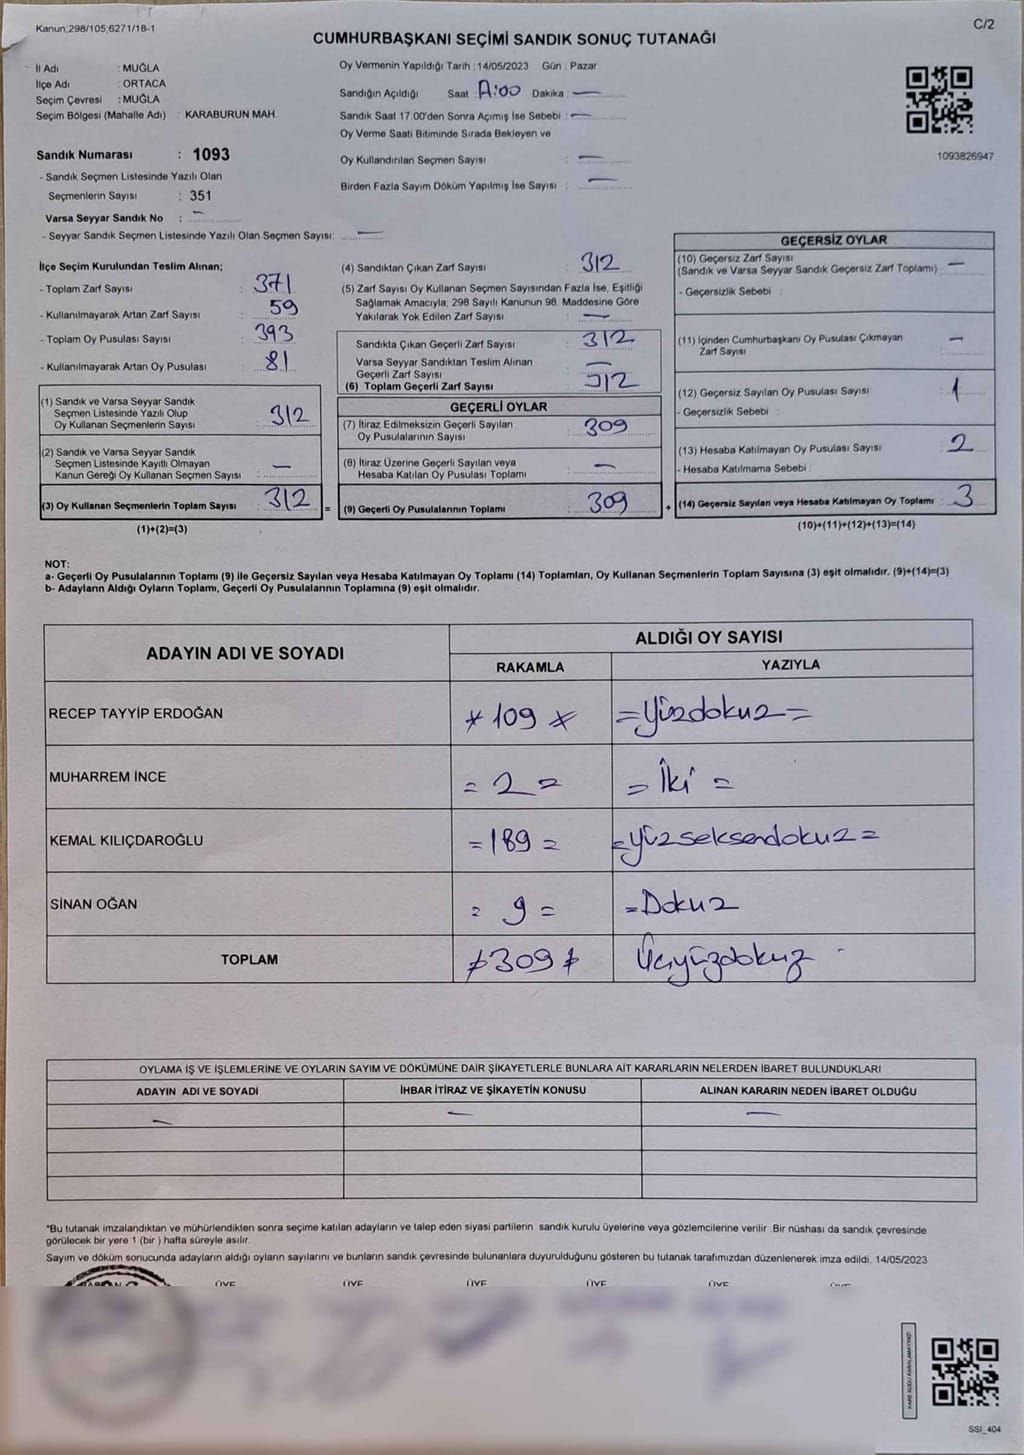 Kanun;298/105;6271/18-1
C/2
CUMHURBAŞKANI SEÇİMİ SANDIK SONUÇ TUTANAĞI
İl Adı : MUĞLA
İlçe Adı : ORTACA
Seçim Çevresi : MUĞLA
Seçim Bölgesi (Mahalle Adı) : KARABURUN MAH.
Sandık Numarası : 1093
- Sandık Seçmen Listesinde Yazılı Olan
Seçmenlerin Sayısı : 351
Varsa Seyyar Sandık No : -
- Seyyar Sandık Seçmen Listesinde Yazılı Olan Seçmen Sayısı: —
Oy Vermenin Yapıldığı Tarih : 14/05/2023 Gün : Pazar
Sandığın Açıldığı Saat : Dakika : —
Sandık Saat 17.00'den Sonra Açımış İse Sebebi : —
Oy Verme Saati Bitiminde Sırada Bekleyen ve
Oy Kullandırılan Seçmen Sayısı : —
Birden Fazla Sayım Döküm Yapılmış İse Sayısı : —
1093826947
İlçe Seçim Kurulundan Teslim Alınan;
- Toplam Zarf Sayısı : 371
- Kullanılmayarak Artan Zarf Sayısı : 59
- Toplam Oy Pusulası Sayısı : 393
- Kullanılmayarak Artan Oy Pusulası : 81
(1) Sandık ve Varsa Seyyar Sandık
Seçmen Listesinde Yazılı Olup
Oy Kullanan Seçmenlerin Sayısı : 312
(2) Sandık ve Varsa Seyyar Sandık
Seçmen Listesinde Kayıtlı Olmayan
Kanun Gereği Oy Kullanan Seçmen Sayısı : —
(3) Oy Kullanan Seçmenlerin Toplam Sayısı : 312 =
(1)+(2)=(3)
(4) Sandıktan Çıkan Zarf Sayısı : 312
(5) Zarf Sayısı Oy Kullanan Seçmen Sayısından Fazla İse, Eşitliği
Sağlamak Amacıyla; 298 Sayılı Kanunun 98. Maddesine Göre
Yakılarak Yok Edilen Zarf Sayısı : —
Sandıkta Çıkan Geçerli Zarf Sayısı : 312
Varsa Seyyar Sandıktan Teslim Alınan
Geçerli Zarf Sayısı : —
(6) Toplam Geçerli Zarf Sayısı : 312
GEÇERLİ OYLAR
(7) İtiraz Edilmeksizin Geçerli Sayılan
Oy Pusulalarının Sayısı : 309
(8) İtiraz Üzerine Geçerli Sayılan veya
Hesaba Katılan Oy Pusulası Toplamı : —
(9) Geçerli Oy Pusulalarının Toplamı : 309 +
GEÇERSİZ OYLAR
(10) Geçersiz Zarf Sayısı
(Sandık ve Varsa Seyyar Sandık Geçersiz Zarf Toplamı) : —
- Geçersizlik Sebebi :
(11) İçinden Cumhurbaşkanı Oy Pusulası Çıkmayan
Zarf Sayısı : —
(12) Geçersiz Sayılan Oy Pusulası Sayısı : 1
- Geçersizlik Sebebi :
(13) Hesaba Katılmayan Oy Pusulası Sayısı : 2
- Hesaba Katılmama Sebebi :
(14) Geçersiz Sayılan veya Hesaba Katılmayan Oy Toplamı : 3
(10)+(11)+(12)+(13)=(14)
NOT:
a- Geçerli Oy Pusulalarının Toplamı (9) ile Geçersiz Sayılan veya Hesaba Katılmayan Oy Toplamı (14) Toplamları, Oy Kullanan Seçmenlerin Toplam Sayısına (3) eşit olmalıdır. (9)+(14)=(3)
b- Adayların Aldığı Oyların Toplamı, Geçerli Oy Pusulalarının Toplamına (9) eşit olmalıdır.
ADAYIN ADI VE SOYADI
ALDIĞI OY SAYISI
RAKAMLA YAZIYLA
RECEP TAYYİP ERDOĞAN * 109 * =Yüzdokuz=
MUHARREM İNCE = 2 = = İki =
KEMAL KILIÇDAROĞLU =189= =yüzseksendokuz=
SİNAN OĞAN = 9 = =Dokuz
TOPLAM ≠309≠ Üçyüzdokuz
OYLAMA İŞ VE İŞLEMLERİNE VE OYLARIN SAYIM VE DÖKÜMÜNE DAİR ŞİKAYETLERLE BUNLARA AİT KARARLARIN NELERDEN İBARET BULUNDUKLARI
ADAYIN ADI VE SOYADI İHBAR İTİRAZ VE ŞİKAYETİN KONUSU ALINAN KARARIN NEDEN İBARET OLDUĞU
— — —
*Bu tutanak imzalandıktan ve mühürlendikten sonra seçime katılan adayların ve talep eden siyasi partilerin sandık kurulu üyelerine veya gözlemcilerine verilir .Bir nüshası da sandık çevresinde
görülecek bir yere 1 (bir ) hafta süreyle asılır.
Sayım ve döküm sonucunda adayların aldığı oyların sayılarını ve bunların sandık çevresinde bulunanlara duyurulduğunu gösteren bu tutanak tarafımızdan düzenlenerek imza edildi. 14/05/2023
ÜYE ÜYE ÜYE ÜYE ÜYE ÜYE
SSI_404